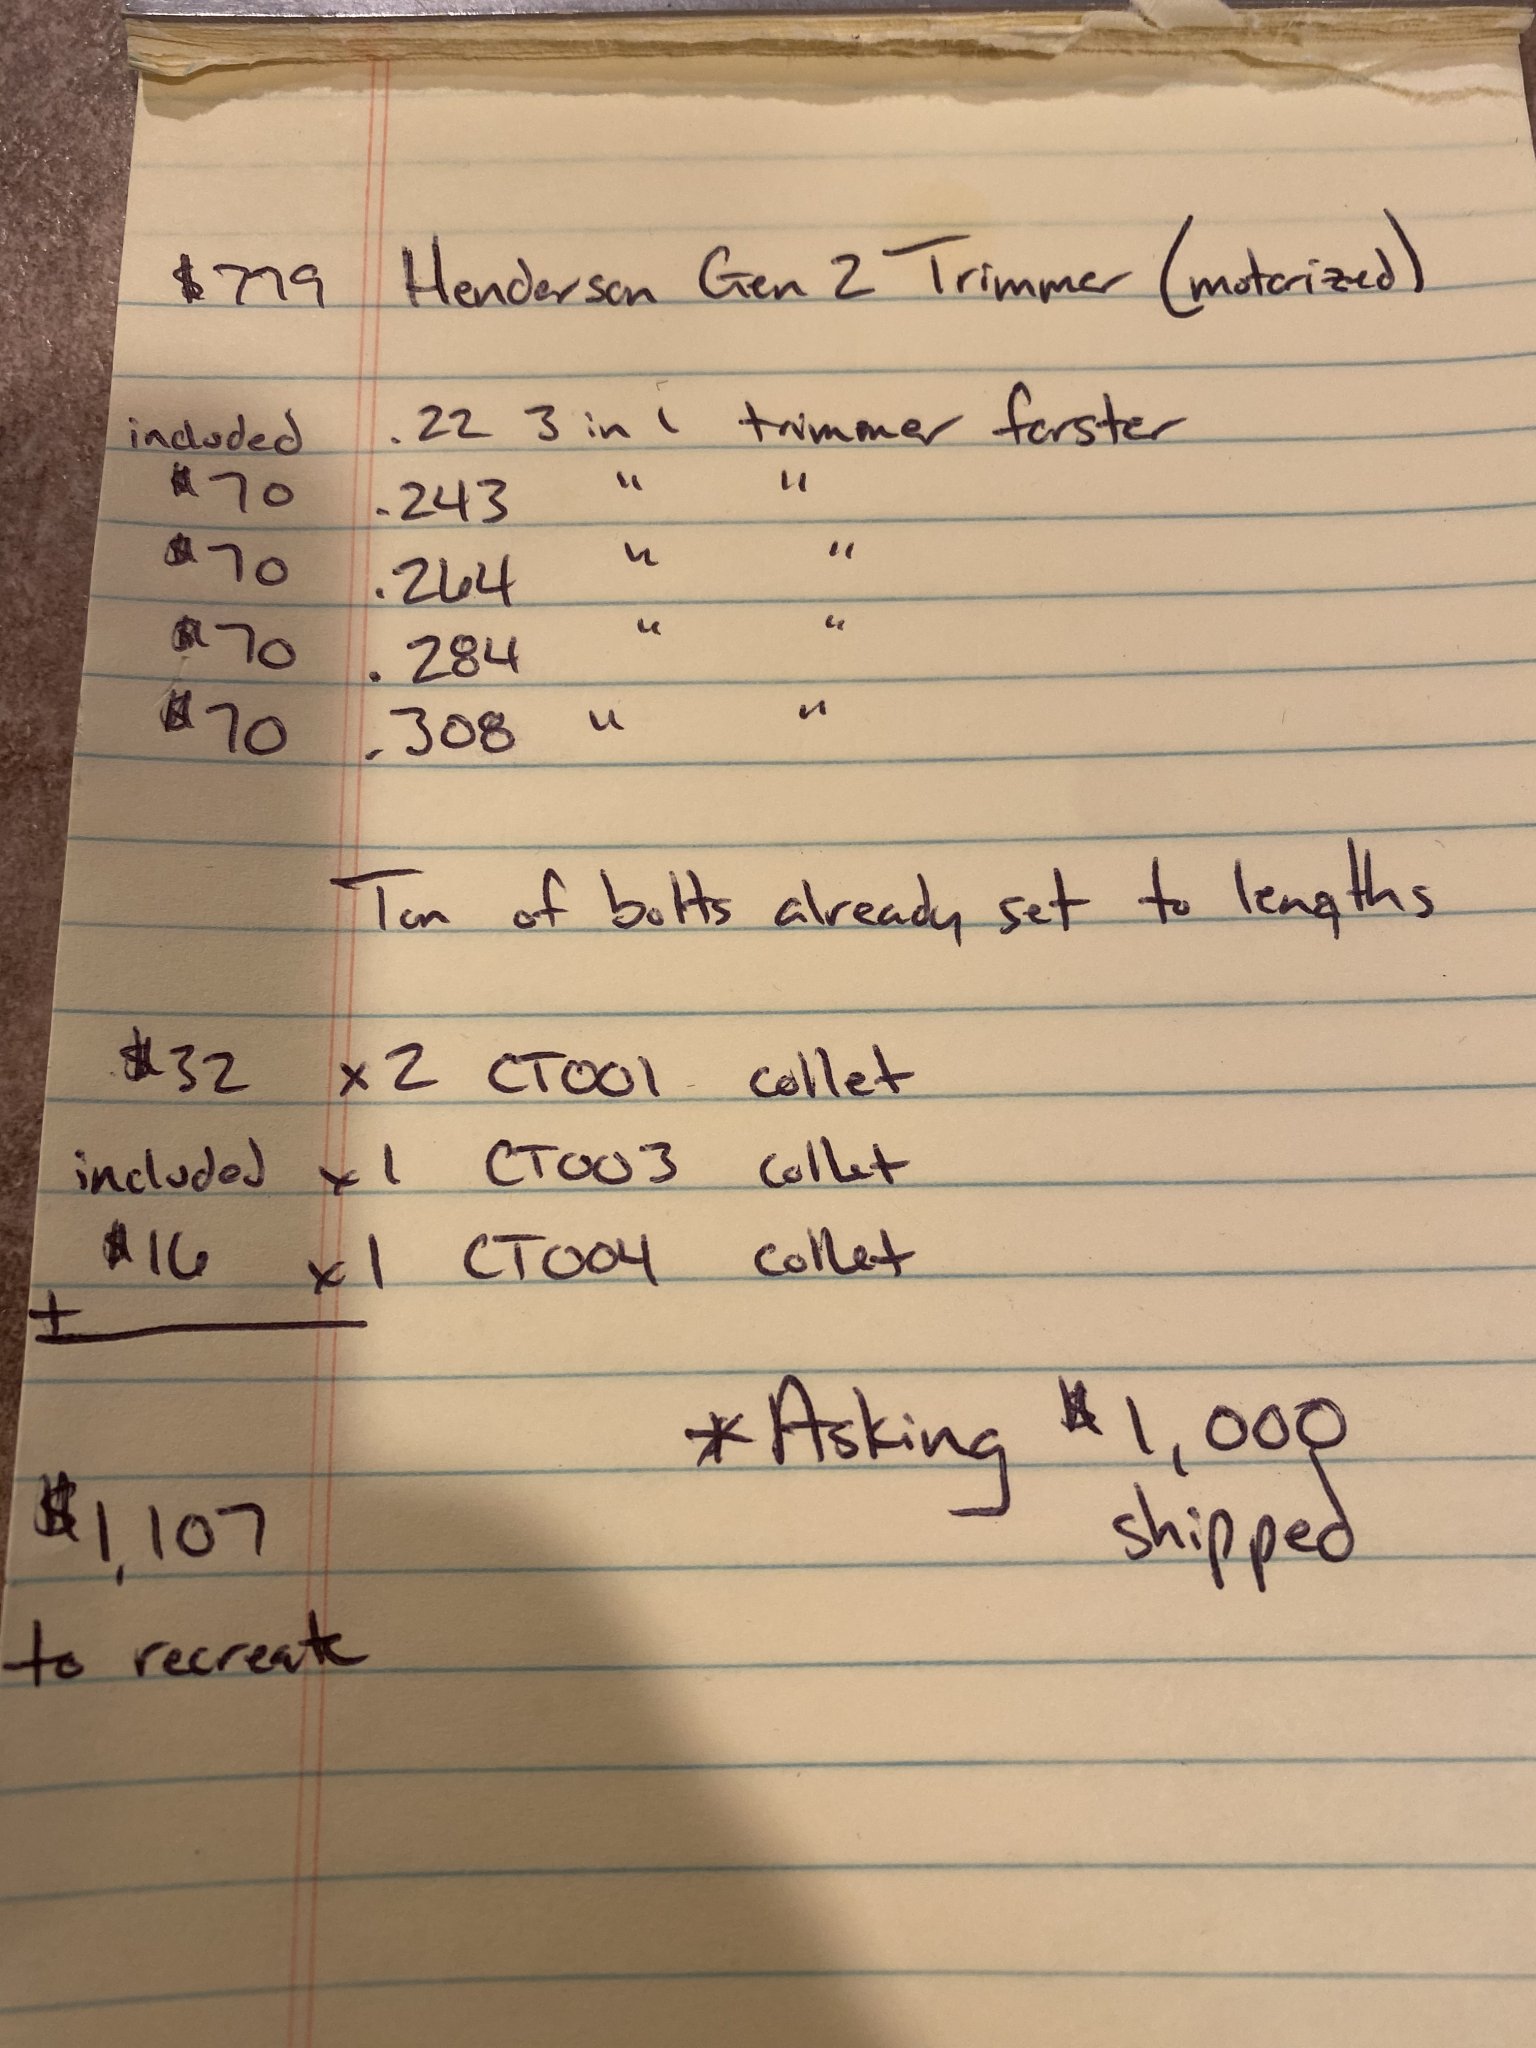 $779 Henderson Gen 2 Trimmer (motorized)
included .22 3 in 1 trimmer forster
$70 .243 " "
$70 .264 " "
$70 .284 " "
$70 .308 " "
Ton of bolts already set to lengths
$32 x2 CT001 collet
included x1 CT003 collet
$16 x1 CT004 collet
+
*Asking $1,000
shipped
$1,107
to recreate